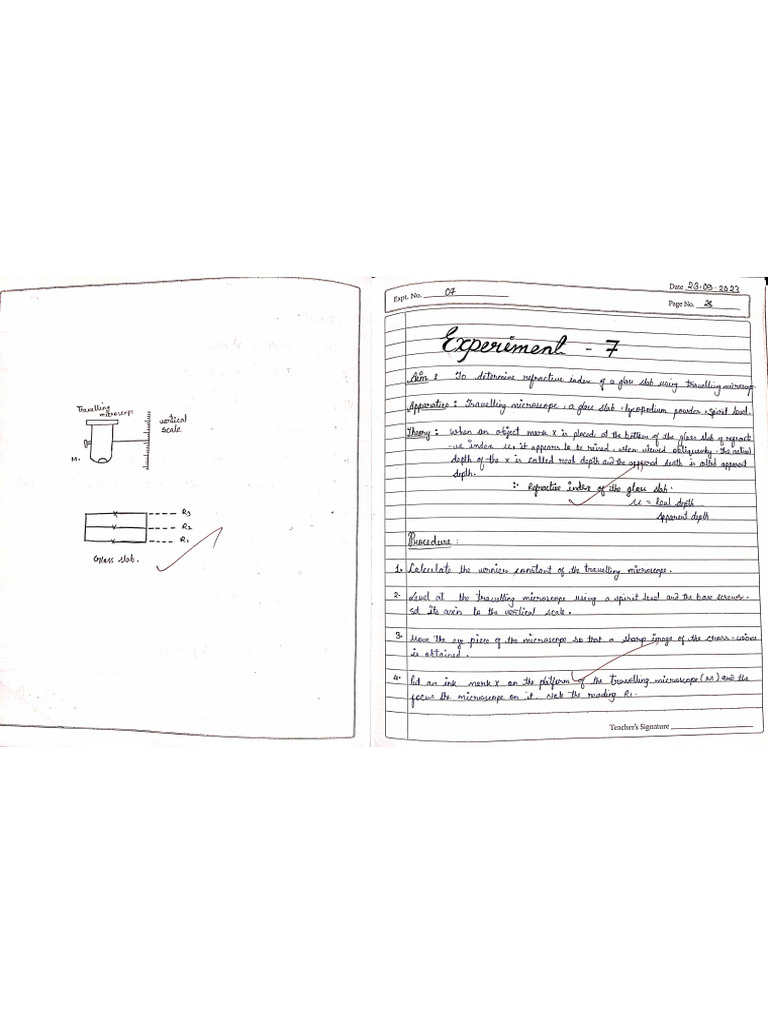 Travelling
microscope
vertical
scale
M.
R3
R2
R1
Glass slab.
Expt. No. 07
Date 23.09.2023
Page No.
Experiment - 7
Aim : To determine refractive index of a glass slab using travelling microscop
Apparatus : Travelling microscope, a glass slab, lycopodium powder, spirit level.
Theory : When an object mark X is placed at the bottom of the glass slab of refract
-ive index u, it appears to be raised, when viewed obliquently. The actual
depth of the x is called real depth and the death is called apparent
depth.
∵ Refractive index of the glass slab.
u = Real depth
Apparent depth
Procedure :
1. Calculate the vernier constant of the travelling microscope.
2. Level at the travelling microscope using a spirit level and the base screws.
Set its axis to the vertical scale.
3. Move the eye piece of the microscope so that a sharp image of the cross-wires
is obtained.
4. Put an ink mark X on the platform of the travelling microscope (M) and the
focus the microscope on it. Note the reading R1.
Teacher's Signature